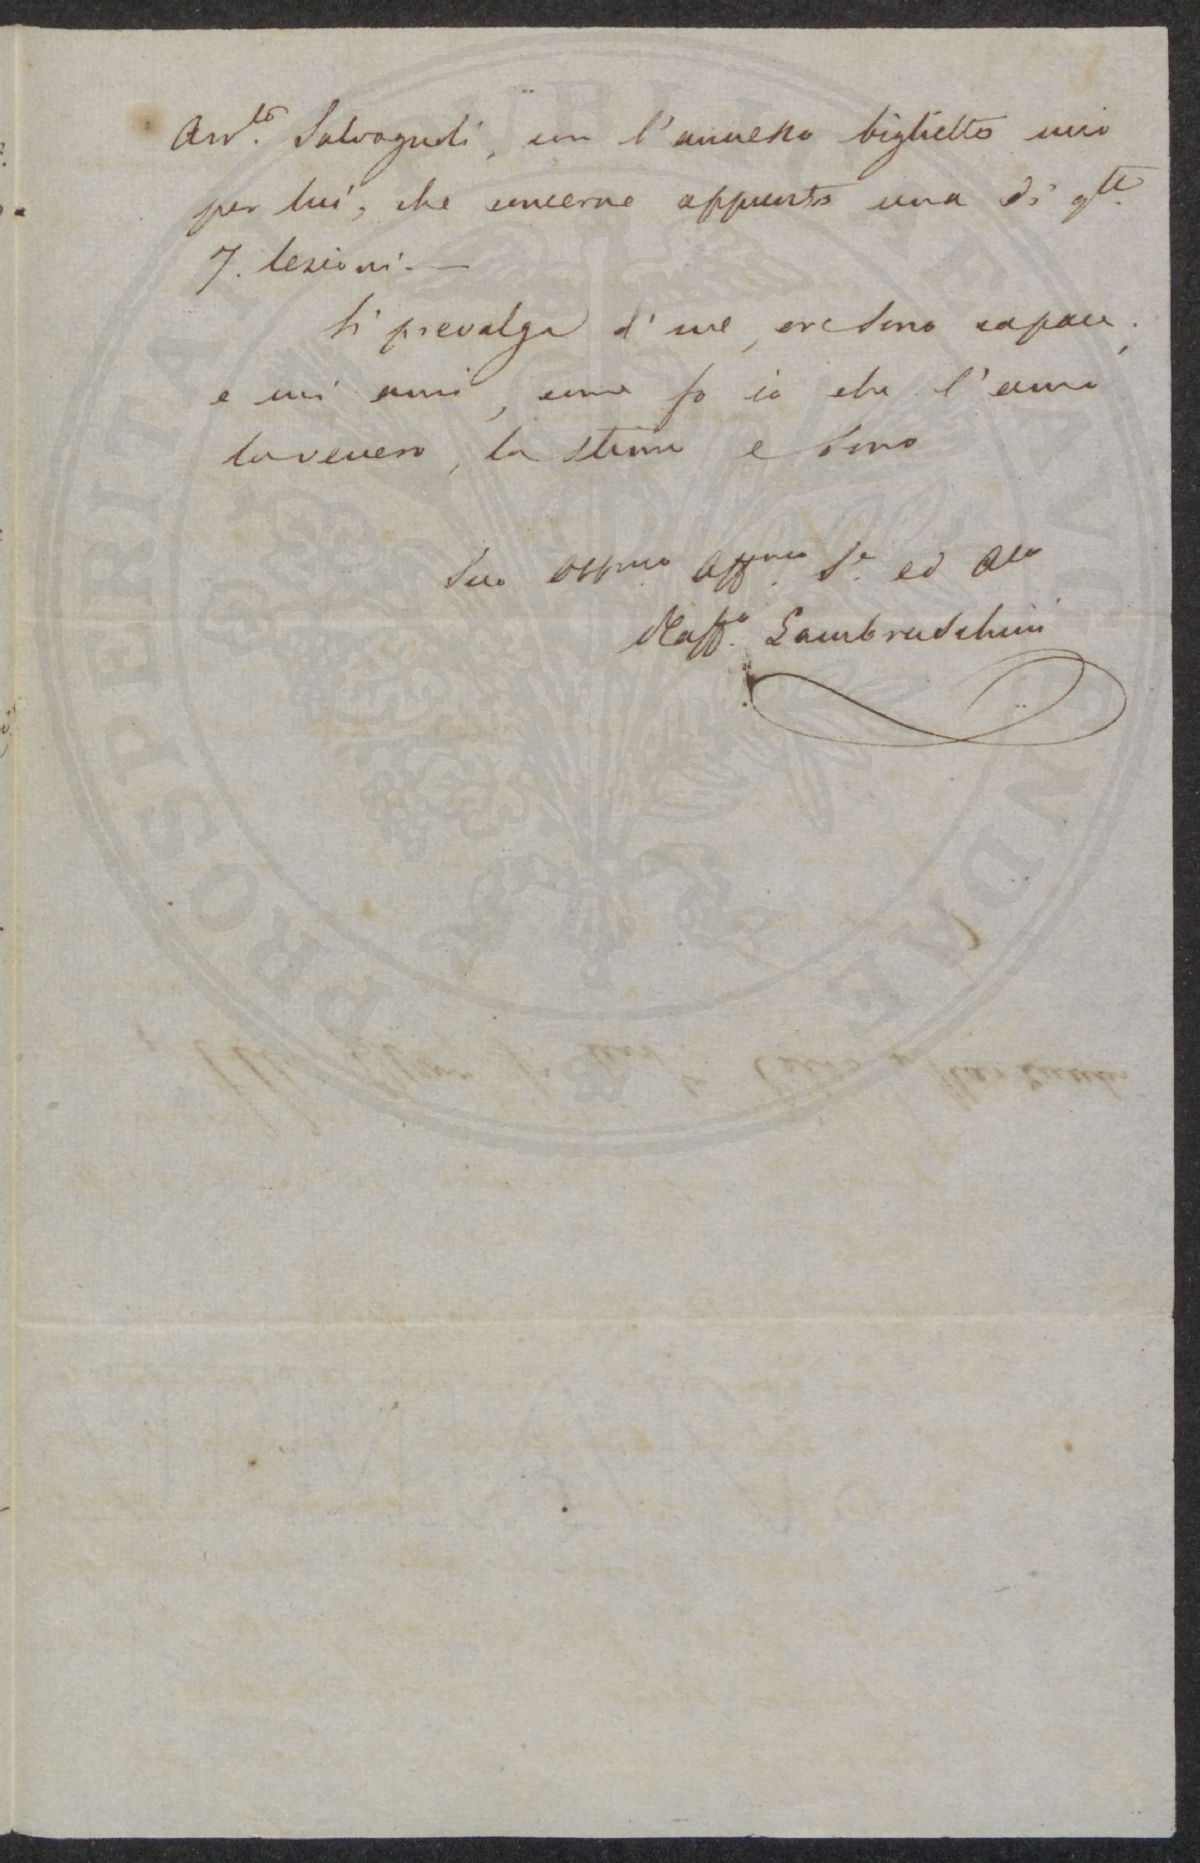 Avv.to Salvagnoli, con l'annesso biglietto mio
per lui, che concerne appunto una di q.lle
7. lezioni. —
Si prevalga d'me, ove sono capace;
e mi ami, come fo io che l'amo
lo venero, la stimo e sono
Suo Aff.mo S.e ed A.co
Raff.o Lambruschini
PROSPERITATI PUBLICAE